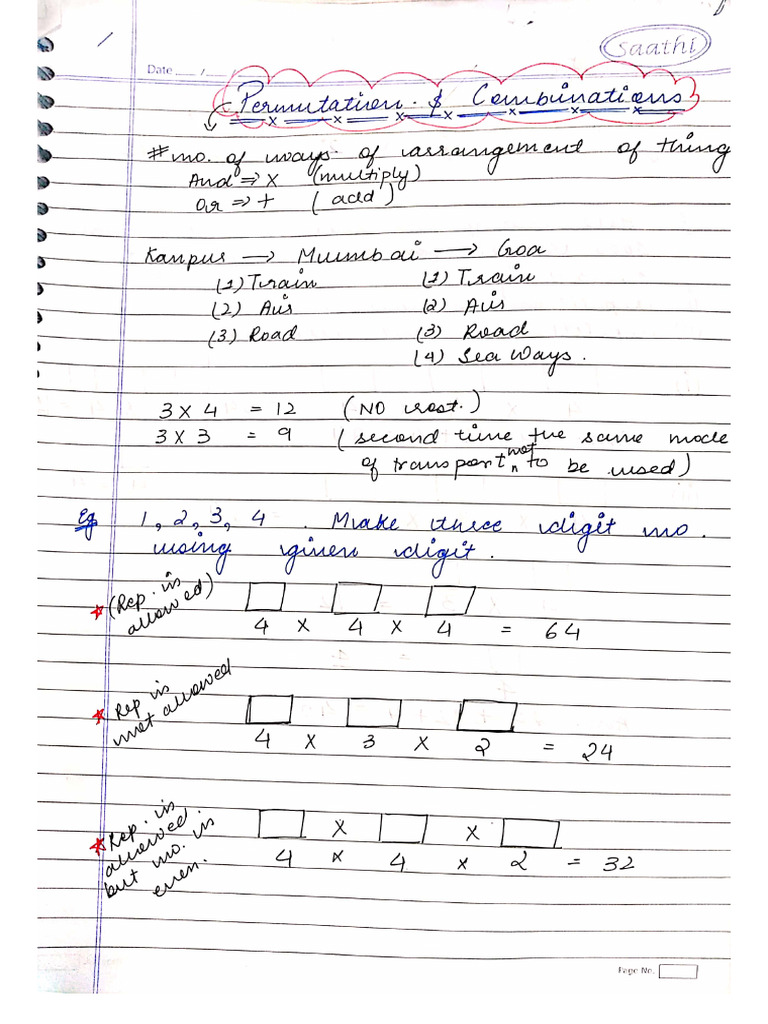 saathi
Date ___/___/___
Permutation & Combinations
# no. of ways of arrangement of thing
And ⇒ x (multiply)
or ⇒ + (add)
Kanpur → Mumbai → Goa
(1) Train (1) Train
(2) Air (2) Air
(3) Road (3) Road
(4) Sea Ways.
3 x 4 = 12 (NO rest.)
3 x 3 = 9 (second time the same mode
of transport not to be used)
Eg 1, 2, 3, 4 . Make three digit no.
using given digit.
(Rep. is
allowed)
4 x 4 x 4 = 64
Rep is
not allowed
4 x 3 x 2 = 24
Rep. is
allowed
but no. is
even.
x x
4 x 4 x 2 = 32
Page No.